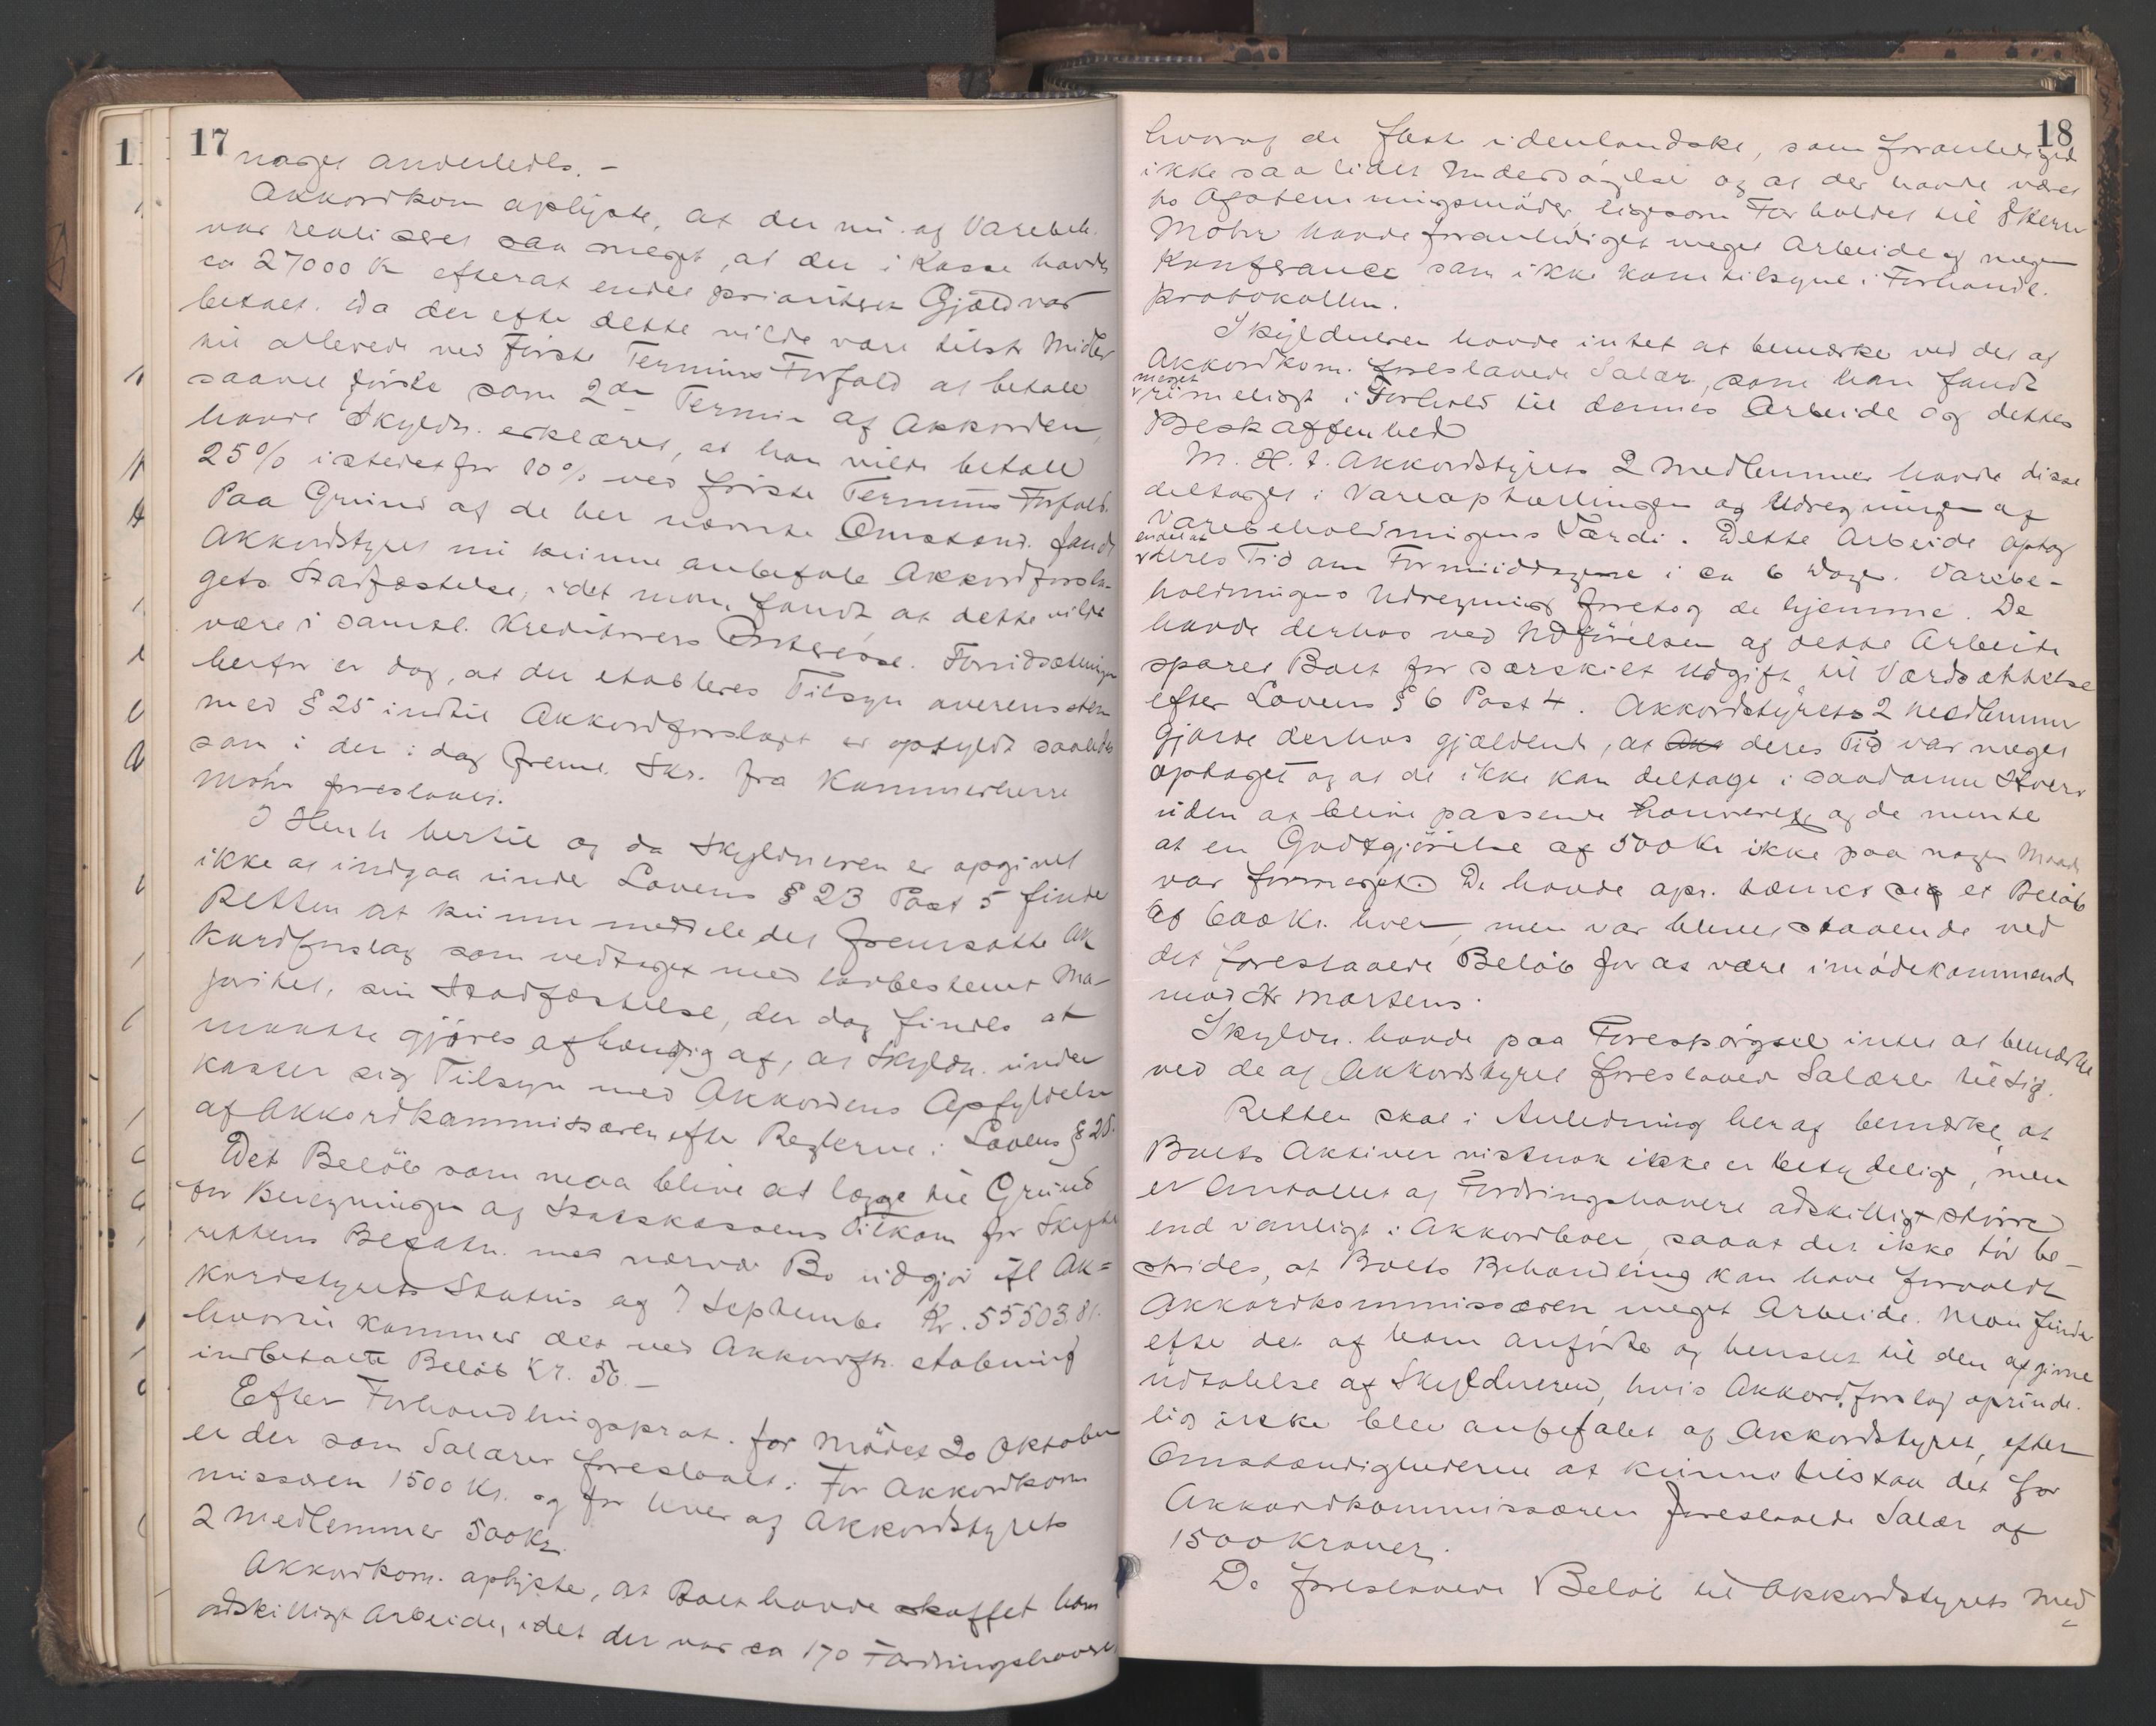 17
noget anderledes. –
Akkordkom oplyste, at der nu af Varebeh.
var realiseret saa meget, at der i Kasse havdes
ca 27000 Kr efterat endel prioriteret Gjæld var
betalt. Da der efter dette vilde være tilstr Midler
nu allerede ved første Termins Forfald at betale
saavel første som 2den Termin af Akkorden,
havde Skyldn. erklæret, at han vilde betale
25% istedetfor 10% ved første Termins Forfald.
Paa Grund af de her nævnte Omstænd. fandt
Akkordstyret nu kunne anbefale Akkordforsla-
gets Stadfæstelse, idet man fandt at dette vilde
være i samtl. Kreditorers Interesse. Forudsætningen
herfor er dog, at der etableres Tilsyn overensstem
med § 25 indtil Akkordforslaget er opfyldt saaledes
som i den i dag freml. Skr. fra Kammerherre
Mohr foreslaaet.
I Henh hertil og da Skyldneren er opgivet
ikke at indgaa under Lovens § 23 Post 5 finder
Retten at kunne meddele det fremsatte Ak
kordforslag som vedtaget med lovbestemt Ma-
joritet, sin Stadfæstelse, der dog findes at
maatte gjøres afhængig af, at Skyldn. under
kaster sig Tilsyn med Akkordens Opfyldelse
af Akkordkommissæren efter Reglerne i Lovens § 25.
Det Beløb som maa blive at lægge til Grund
for Beregningen af Statskassens Tilkom for Skifte
rettens Befatn. med nærvær Bo udgjør ifl Ak=
kordstyrets Status af 7 September Kr. 55503.81.
hvortil kommer det ved Akkordfh. aabning
indbetalte Beløb Kr. 50. –
Efter Forhandlingsprot. for Mødet 20 Oktober
er der som Salærer foreslaaet: For Akkordkom
missæren 1500 Kr. og for hver af Akkordstyrets
2 Medlemmer 500 Kr.
Akkordkom. oplyste, at Boet havde skaffet ham
adskilligt Arbeide, idet der var ca 170 Fordringshavere
18
hvoraf de flest udenlandske, som foranlediget
ikke saa liden Undersøgelse og at der havde været
to Afstemningsmøder, ligesom Forholdet til
Mohr havde foranlediget meget Arbeide og megen
Konferance som ikke kom tilsyne i Forhandl.
protokollen.
Skyldneren havde intet at bemærke ved det af
Akkordkom. foreslaaede Salær, som han fandt
meget
rimeligt i Forhold til dennes Arbeide og dettes
Beskaffenhed
M. H. t. Akkordstyrets 2 Medlemmer havde disse
deltaget i Vareoptællingen og Udregningen af
Varebeholdningens Værdi. Dette Arbeide optog
deres Tid om Formiddagene i ca 6 Dage. Varebe-
holdningens Udregning foretog de hjemme. De
havde derhos ved Udførelsen af dette Arbeide
sparet Boet for særskilt Udgift til Værdsættelse
efter Lovens § 6 Post 4. Akkordstyrets 2 Medlemmer
gjorde derhos gjældende, at deres Tid var meget
optaget og at de ikke kan deltage i saadanne Hverv
uden at blive passende honoreret, og de mente
at en Godtgjørelse af 500 Kr ikke paa nogen Maade
var formeget. De havde opr. tænkt sig et Beløb
af 600 Kr. hver, men var blevet staaende ved
det foreslaaede Beløb for at være imødekommende
mod Hr Martens.
Skyldn. havde paa Forespørgsel intet at bemærke
ved de af Akkordstyret foreslaaede Salærer til sig.
Retten skal i Anledning heraf bemærke, at
Boets Aktiver vistnok ikke er betydelige, men
er Antallet af Fordringshavere adskilligt større
end vanligt i Akkordboer, saaat det ikke tør be-
strides, at Boets Behandling kan have forvoldt
Akkordkommissæren meget Arbeide. Man finder
efter det af ham anførte og henset til den afgivne
Udtalelse af Skyldneren, hvis Akkordforslag oprinde-
lig ikke blev anbefalet af Akkordstyret, efter
Omstændighederne at kunne tilstaa det for
Akkordkommissæren foreslaaede Salær af
1500 Kroner.
De foreslaaede Beløb til Akkordstyrets Med